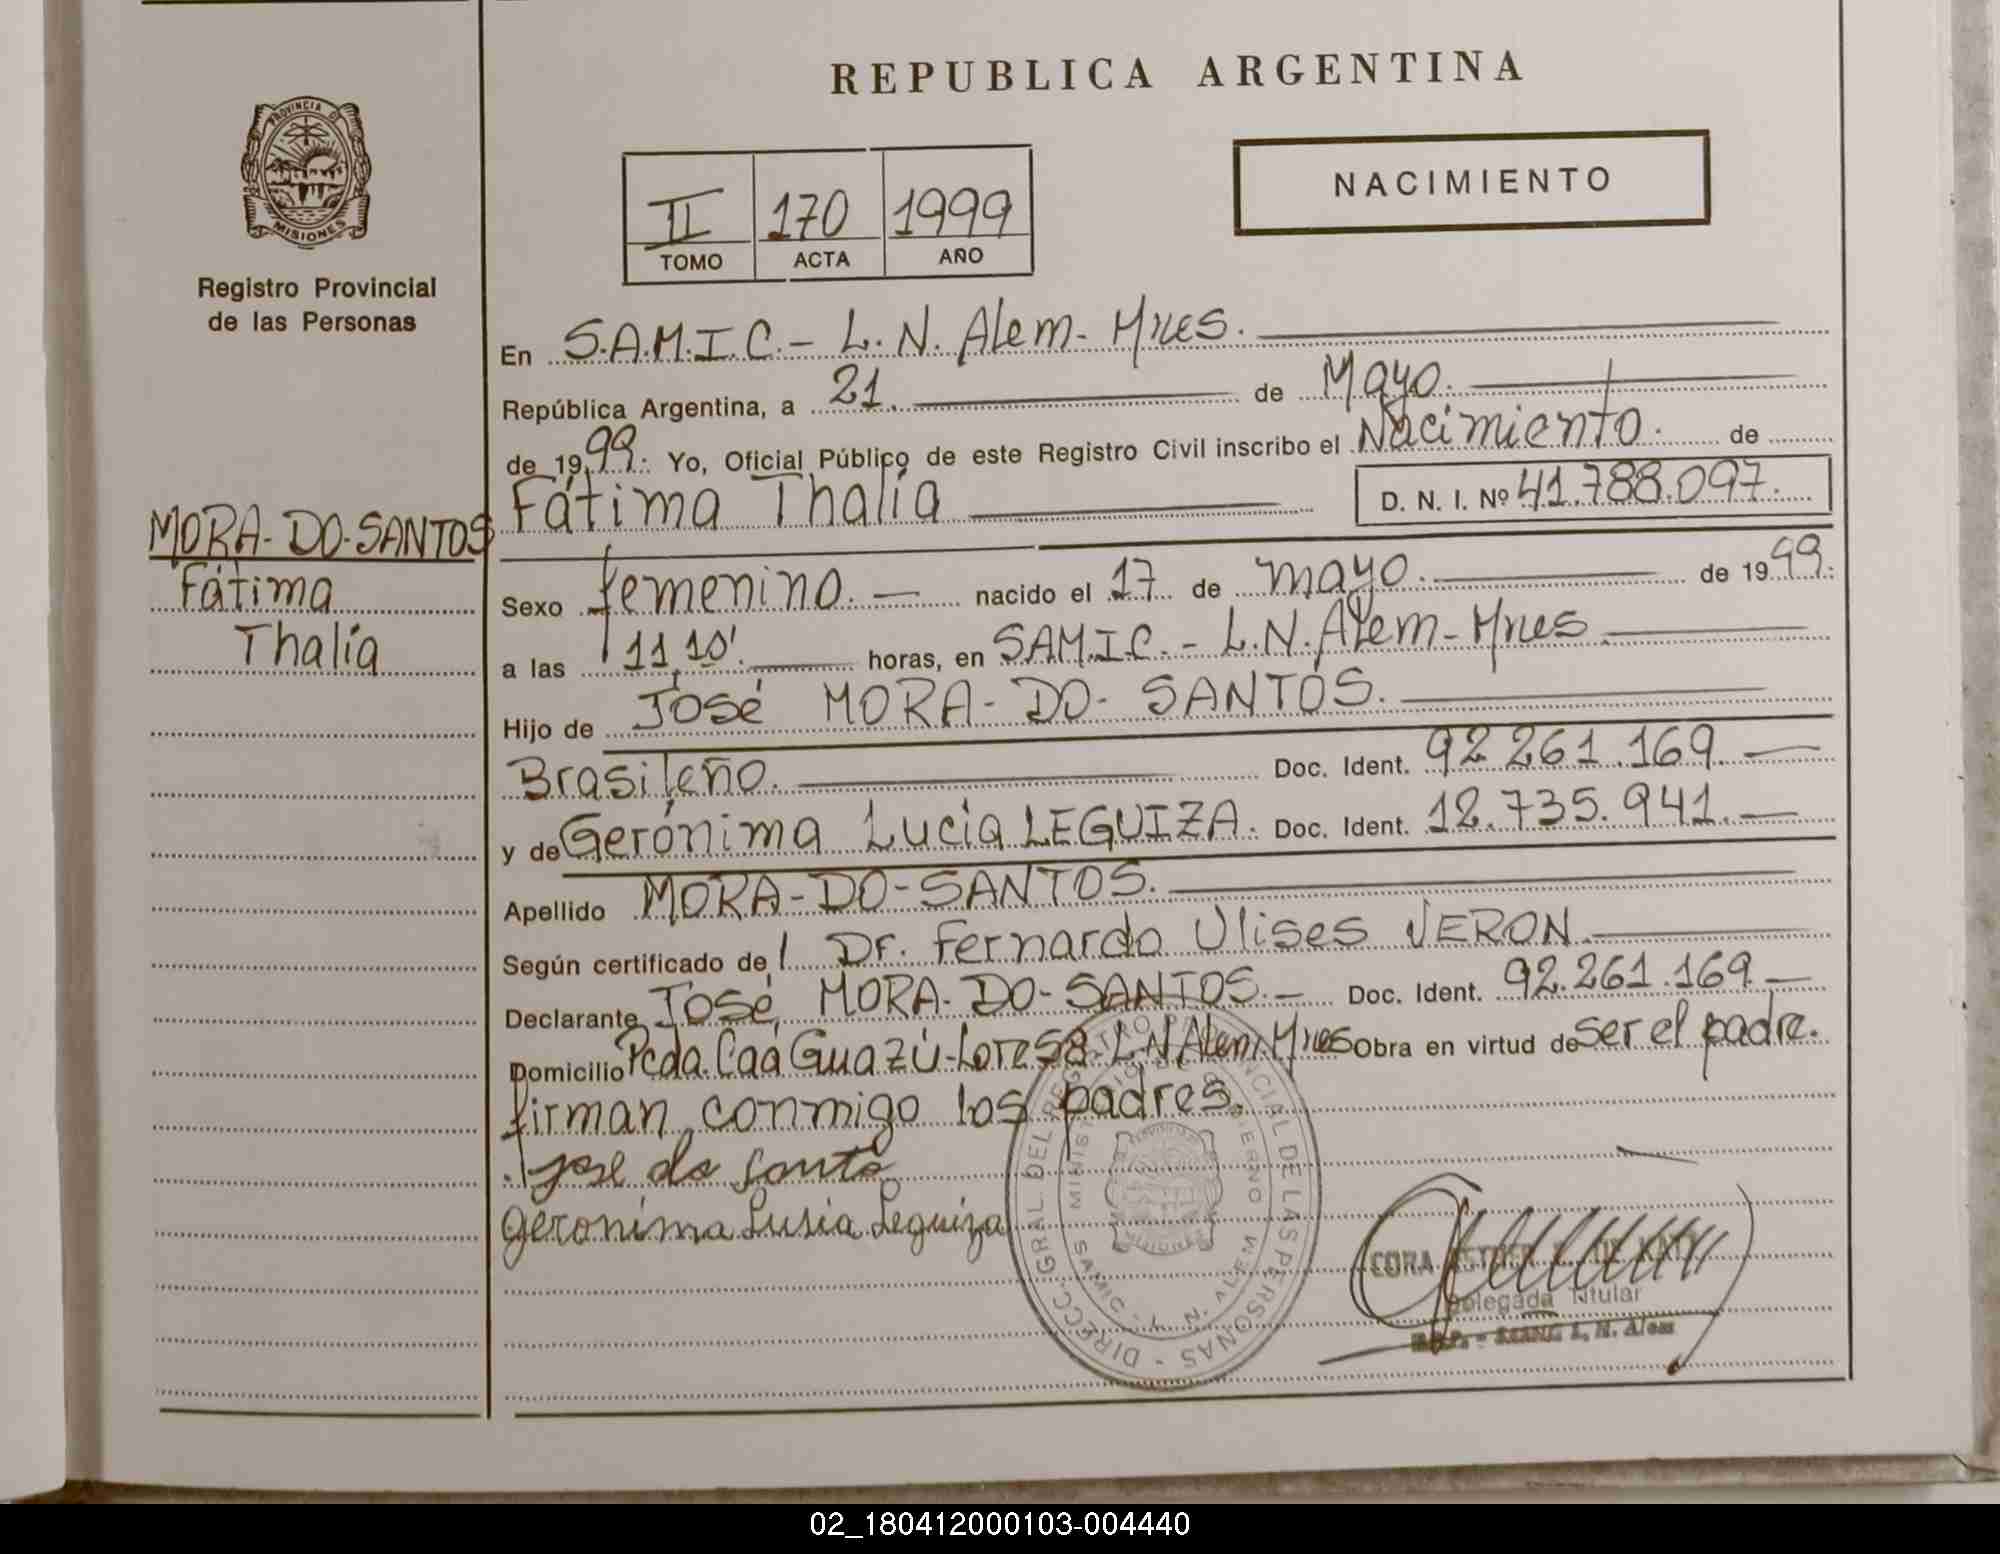 REPUBLICA ARGENTINA
PROVINCIA DE
MISIONES
Registro Provincial
de las Personas
II 170 1999
TOMO ACTA AÑO
NACIMIENTO
En S.A.M.I.C.- L. N. Alem- Mnes.
República Argentina, a 21. de Mayo.
de 1999. Yo, Oficial Público de este Registro Civil inscribo el Nacimiento. de
Fátima Thalía D. N. I. Nº 41.788.097.
MORA-DO-SANTOS
Fátima
Thalía
Sexo femenino. nacido el 17 de mayo. de 1999.
a las 11,10'. horas, en SAM.I.C. - L.N. Alem- Mnes
Hijo de José MORA- DO- SANTOS.
Brasileño. Doc. Ident. 92.261.169.
y de Gerónima Lucía LEGUIZA. Doc. Ident. 12.735.941.
Apellido MORA-DO-SANTOS.
Según certificado de Dr. Fernando Ulises VERON.
Declarante José MORA-DO-SANTOS. Doc. Ident. 92.261.169.
Domicilio Pcda. Caá Guazú-Lote 58- L N Alem. Mnes Obra en virtud de ser el padre.
firman conmigo los padres.
Jose do Santo
Geronima Lusia Leguiza
DIRECC. GRAL. DEL REGISTRO PROVINCIAL DE LAS PERSONAS
SAMIC - L. N. ALEM
MISIONES
CORA
Delegada Titular
L. N. Alem
02_180412000103-004440